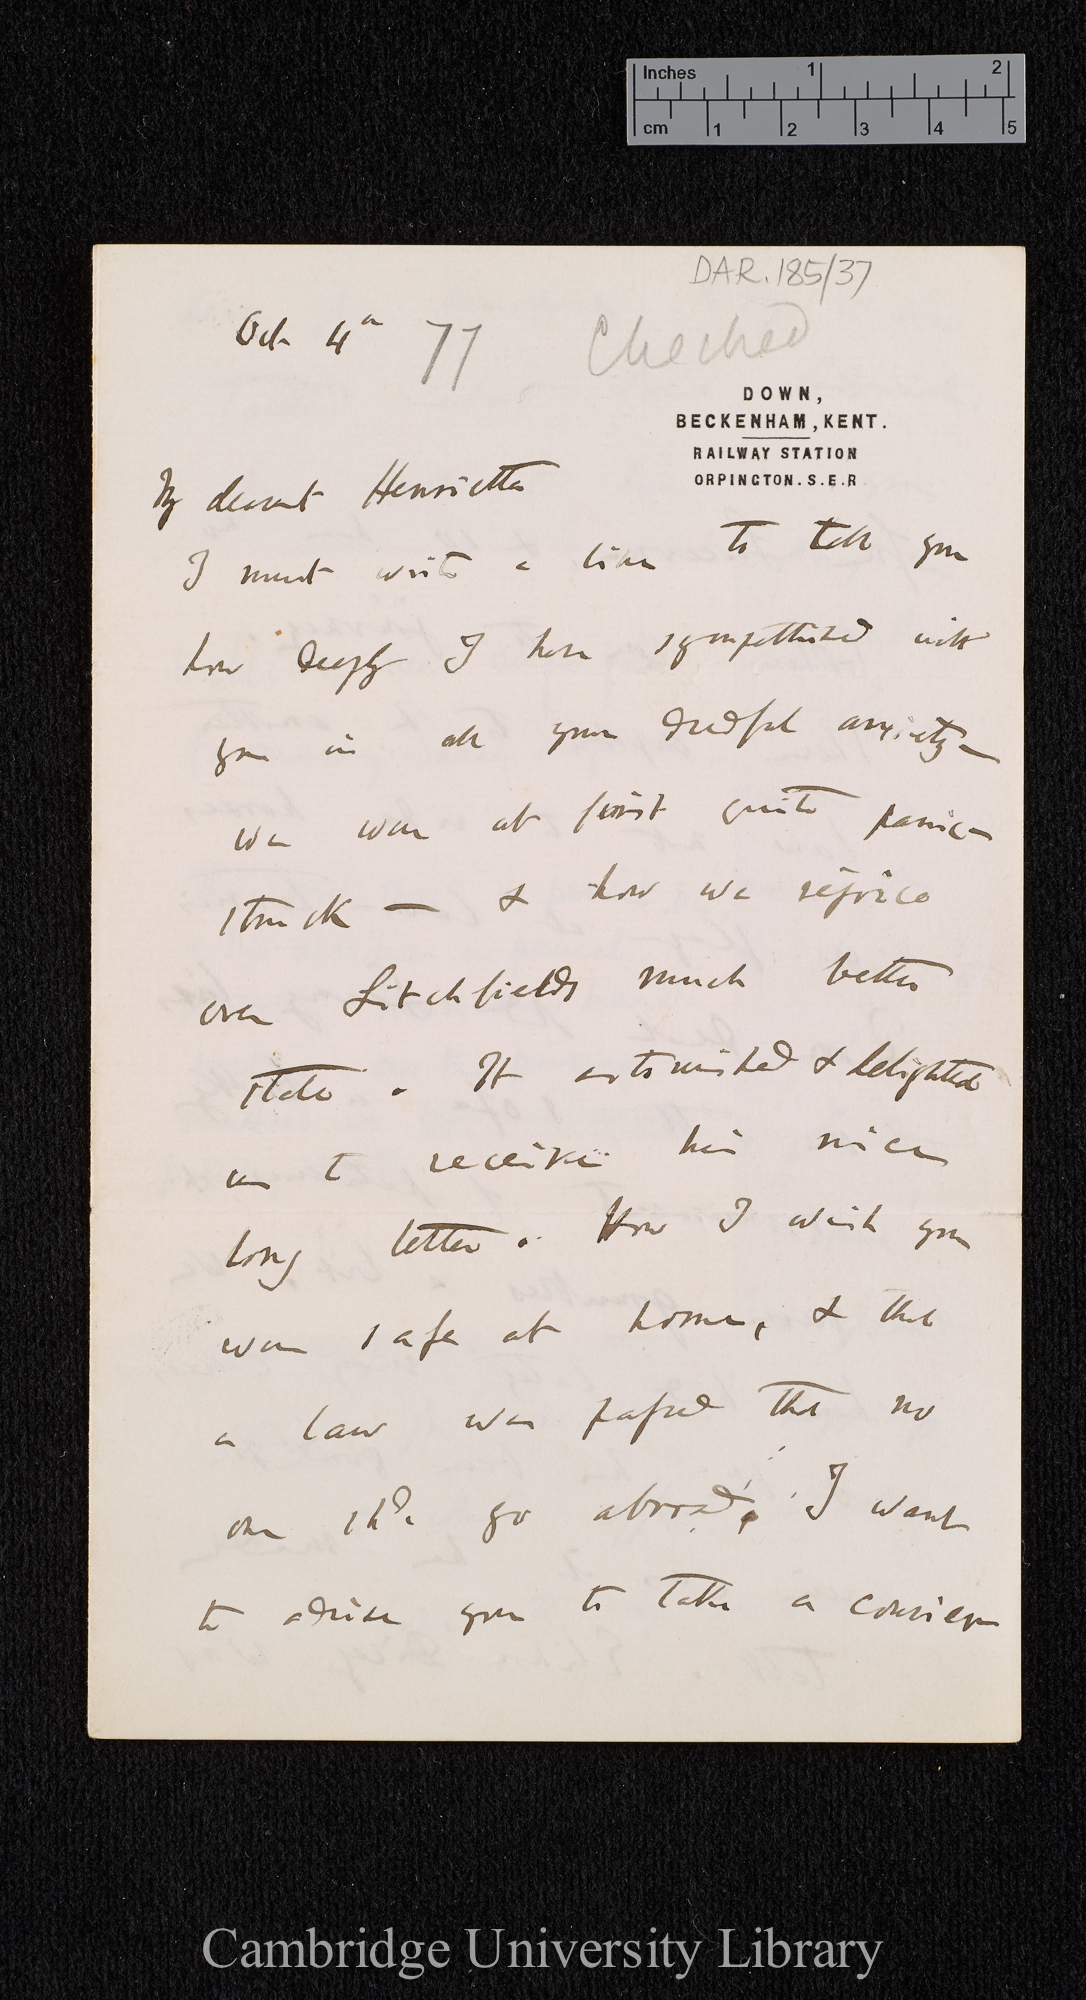 Inches 1 2
cm 1 2 3 4 5
DAR. 185/37
Oct 4th 77 Checked
DOWN,
BECKENHAM, KENT.
RAILWAY STATION
ORPINGTON. S.E.R.
My dearest Henrietta
I must write a line to tell you
how deeply I have sympathised with
you in all your dredful anxiety—
We were at first quite panic-
struck — & how we rejoice
over Litchfields much better
state. It astonished & delighted
us to receive his nice
long letter. How I wish you
were safe at home, & that
a law was passed that no
one shd. go abroad. I want
to advise you to take a courier
Cambridge University Library